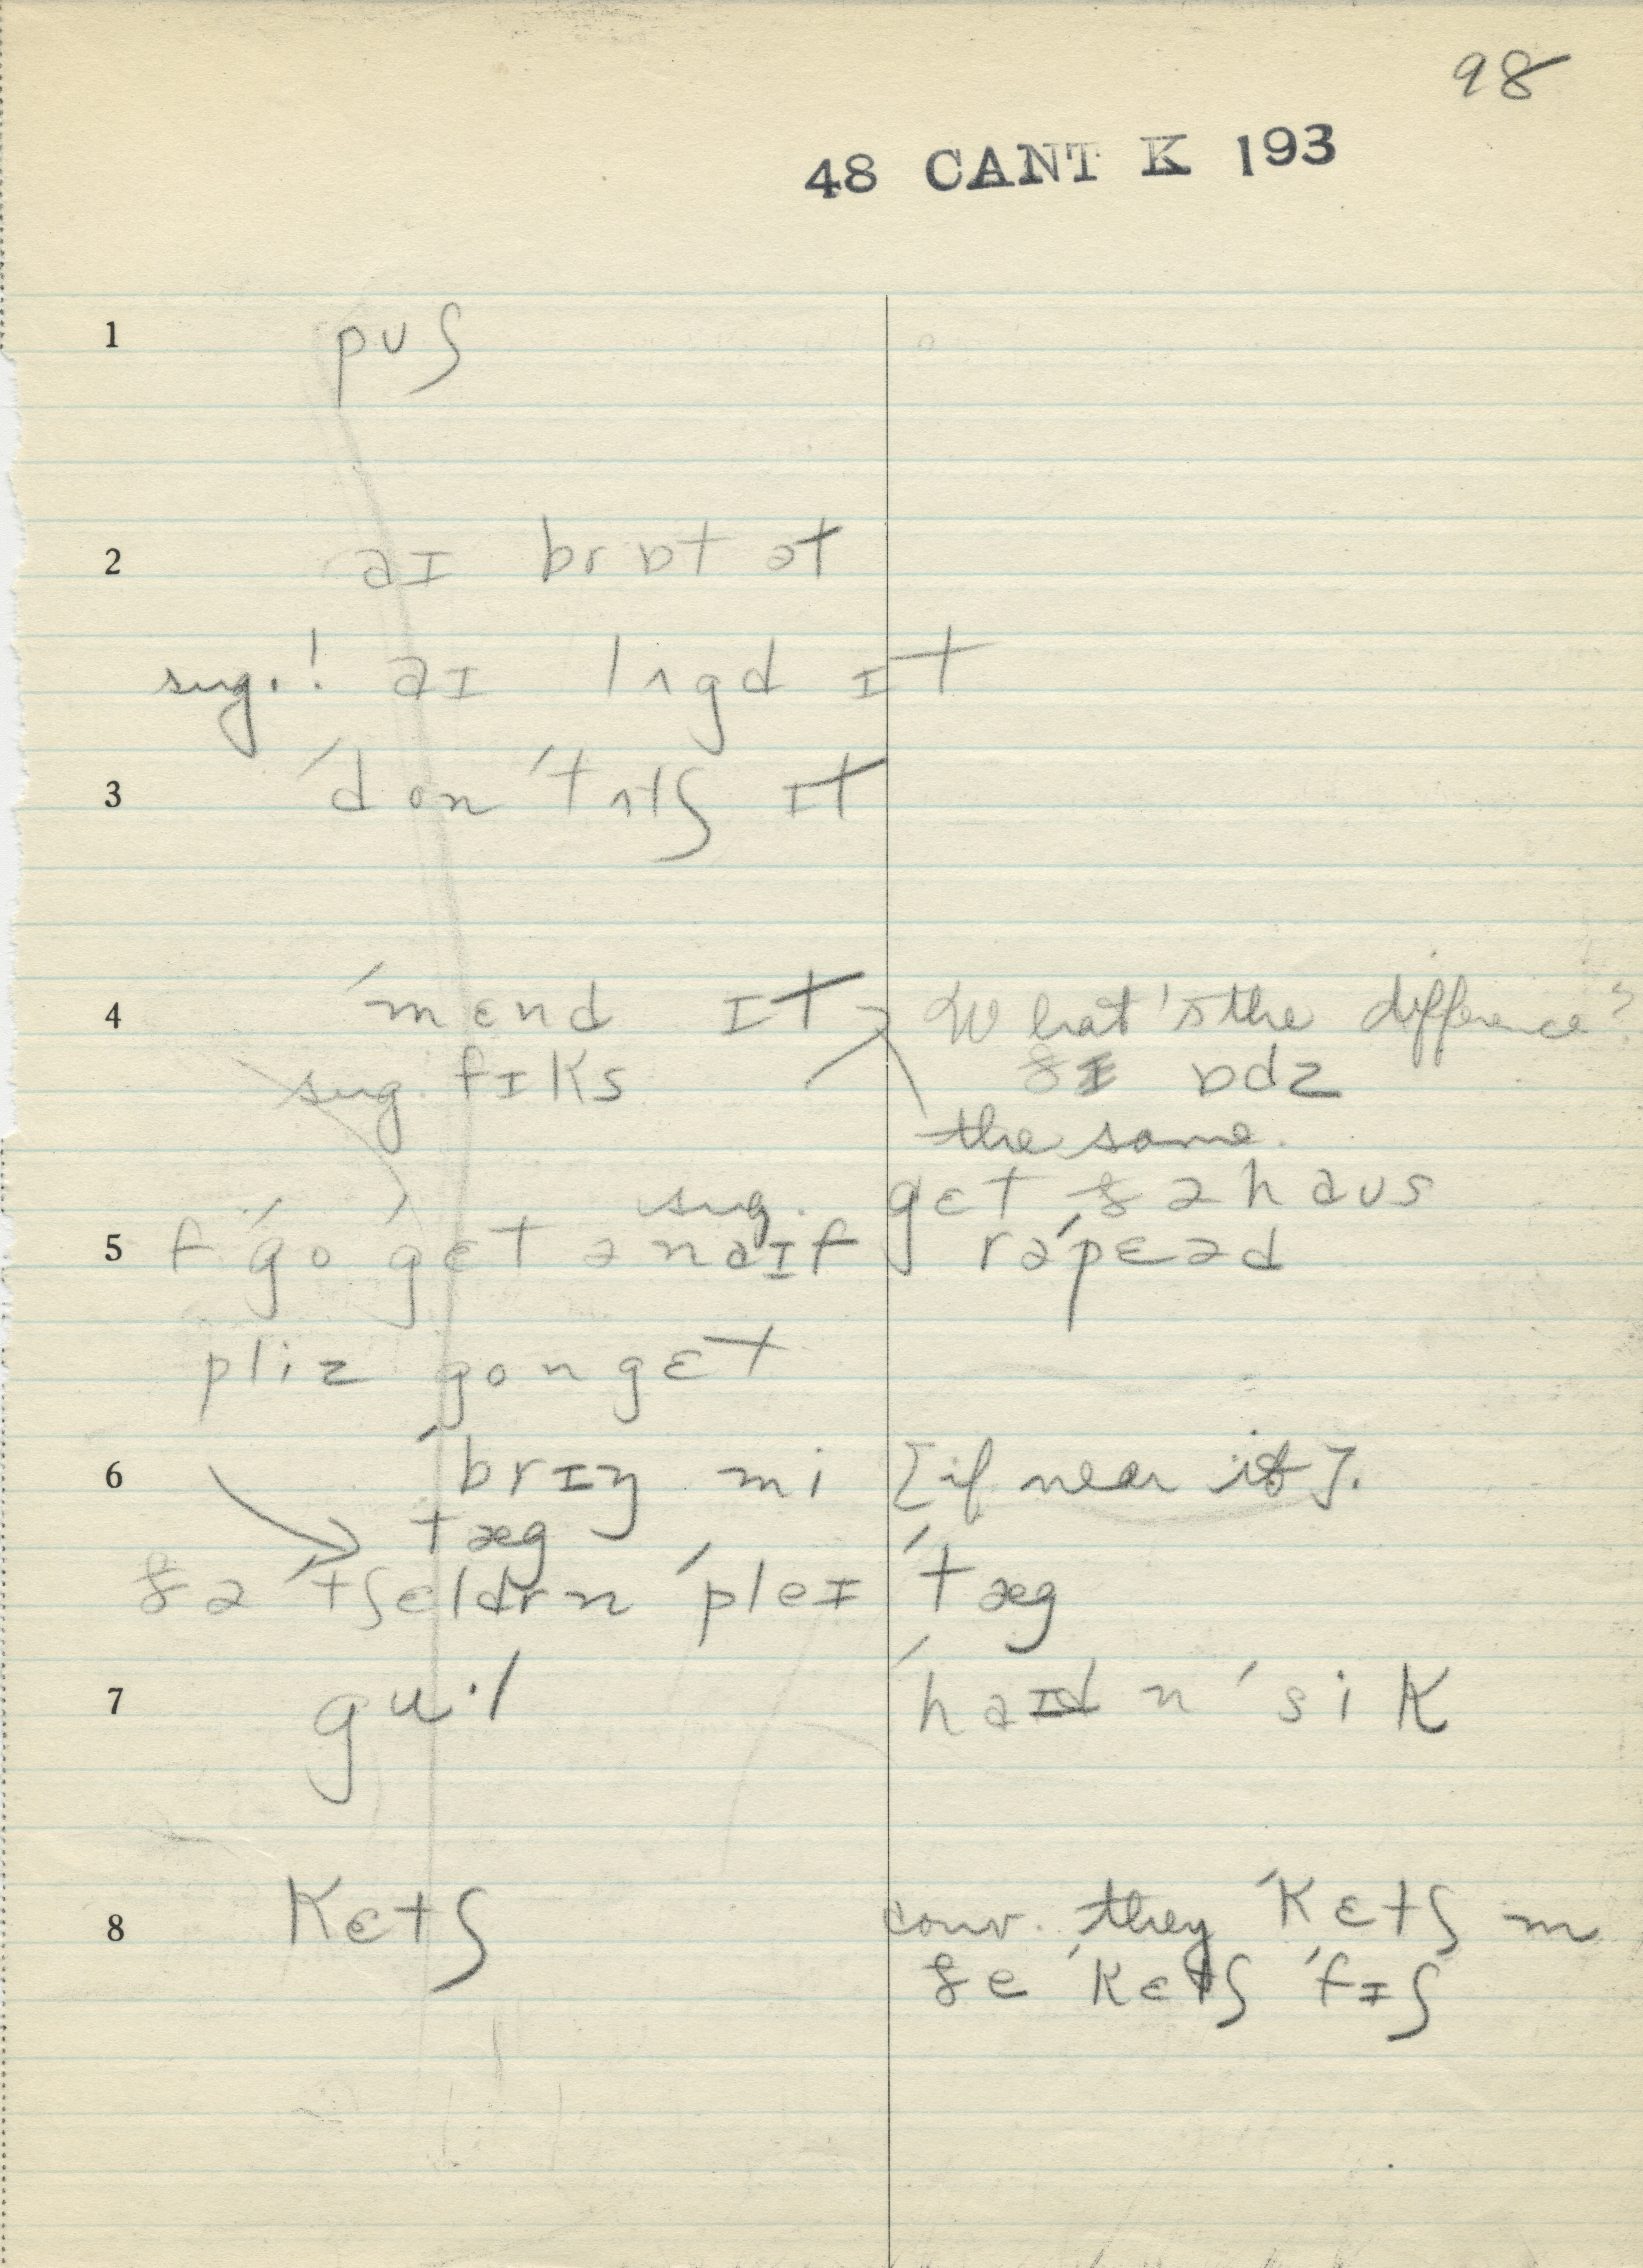 98
48 CANT K 193
1 pʊʃ
2 aɪ brɒt ət
sug.! aɪ lʌgd ɪt
3 ˈdon ˈtʌtʃ ɪt
4 ˈmɛnd ɪt What's the difference?
sug. fɪks ðɪ ɒdz
the same.
sug. gɛt ðə haʊs
5 f ˈgo ˈgɛt ə naɪf rəˈpɛəd
pliz gon gɛt
6 ˈbrɪŋ mi [if near it].
tæg
ðə ˈtʃɛldrn ˈpleɪ ˈtæg
7 guˑl ˈhaɪd n ˈsik
8 kɛtʃ conv. they ˈkɛtʃ m
ðe ˈkɛtʃ ˈfɪʃ